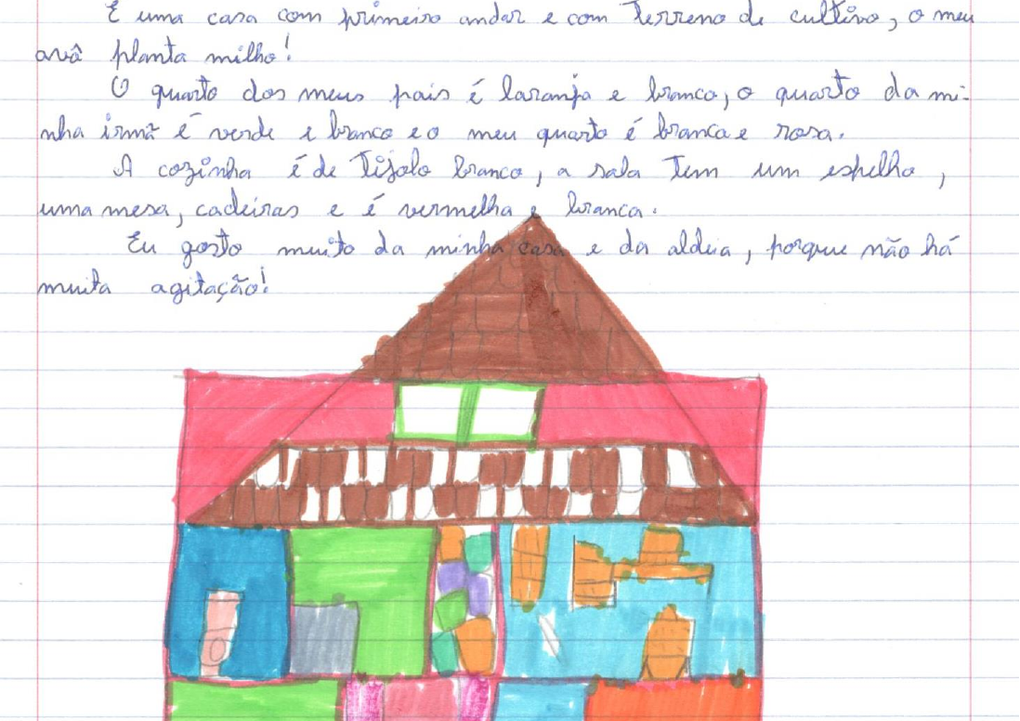 É uma casa com primeiro andar e com terreno de cultivo, o meu
avô planta milho!
O quarto dos meus pais é laranja e branco, o quarto da mi-
nha irmã é verde e branco e o meu quarto é branca e rosa.
A cozinha é de tijolo branco, a sala tem um espelho,
uma mesa, cadeiras e é vermelha e branca.
Eu gosto muito da minha casa e da aldeia, porque não há
muita agitação!